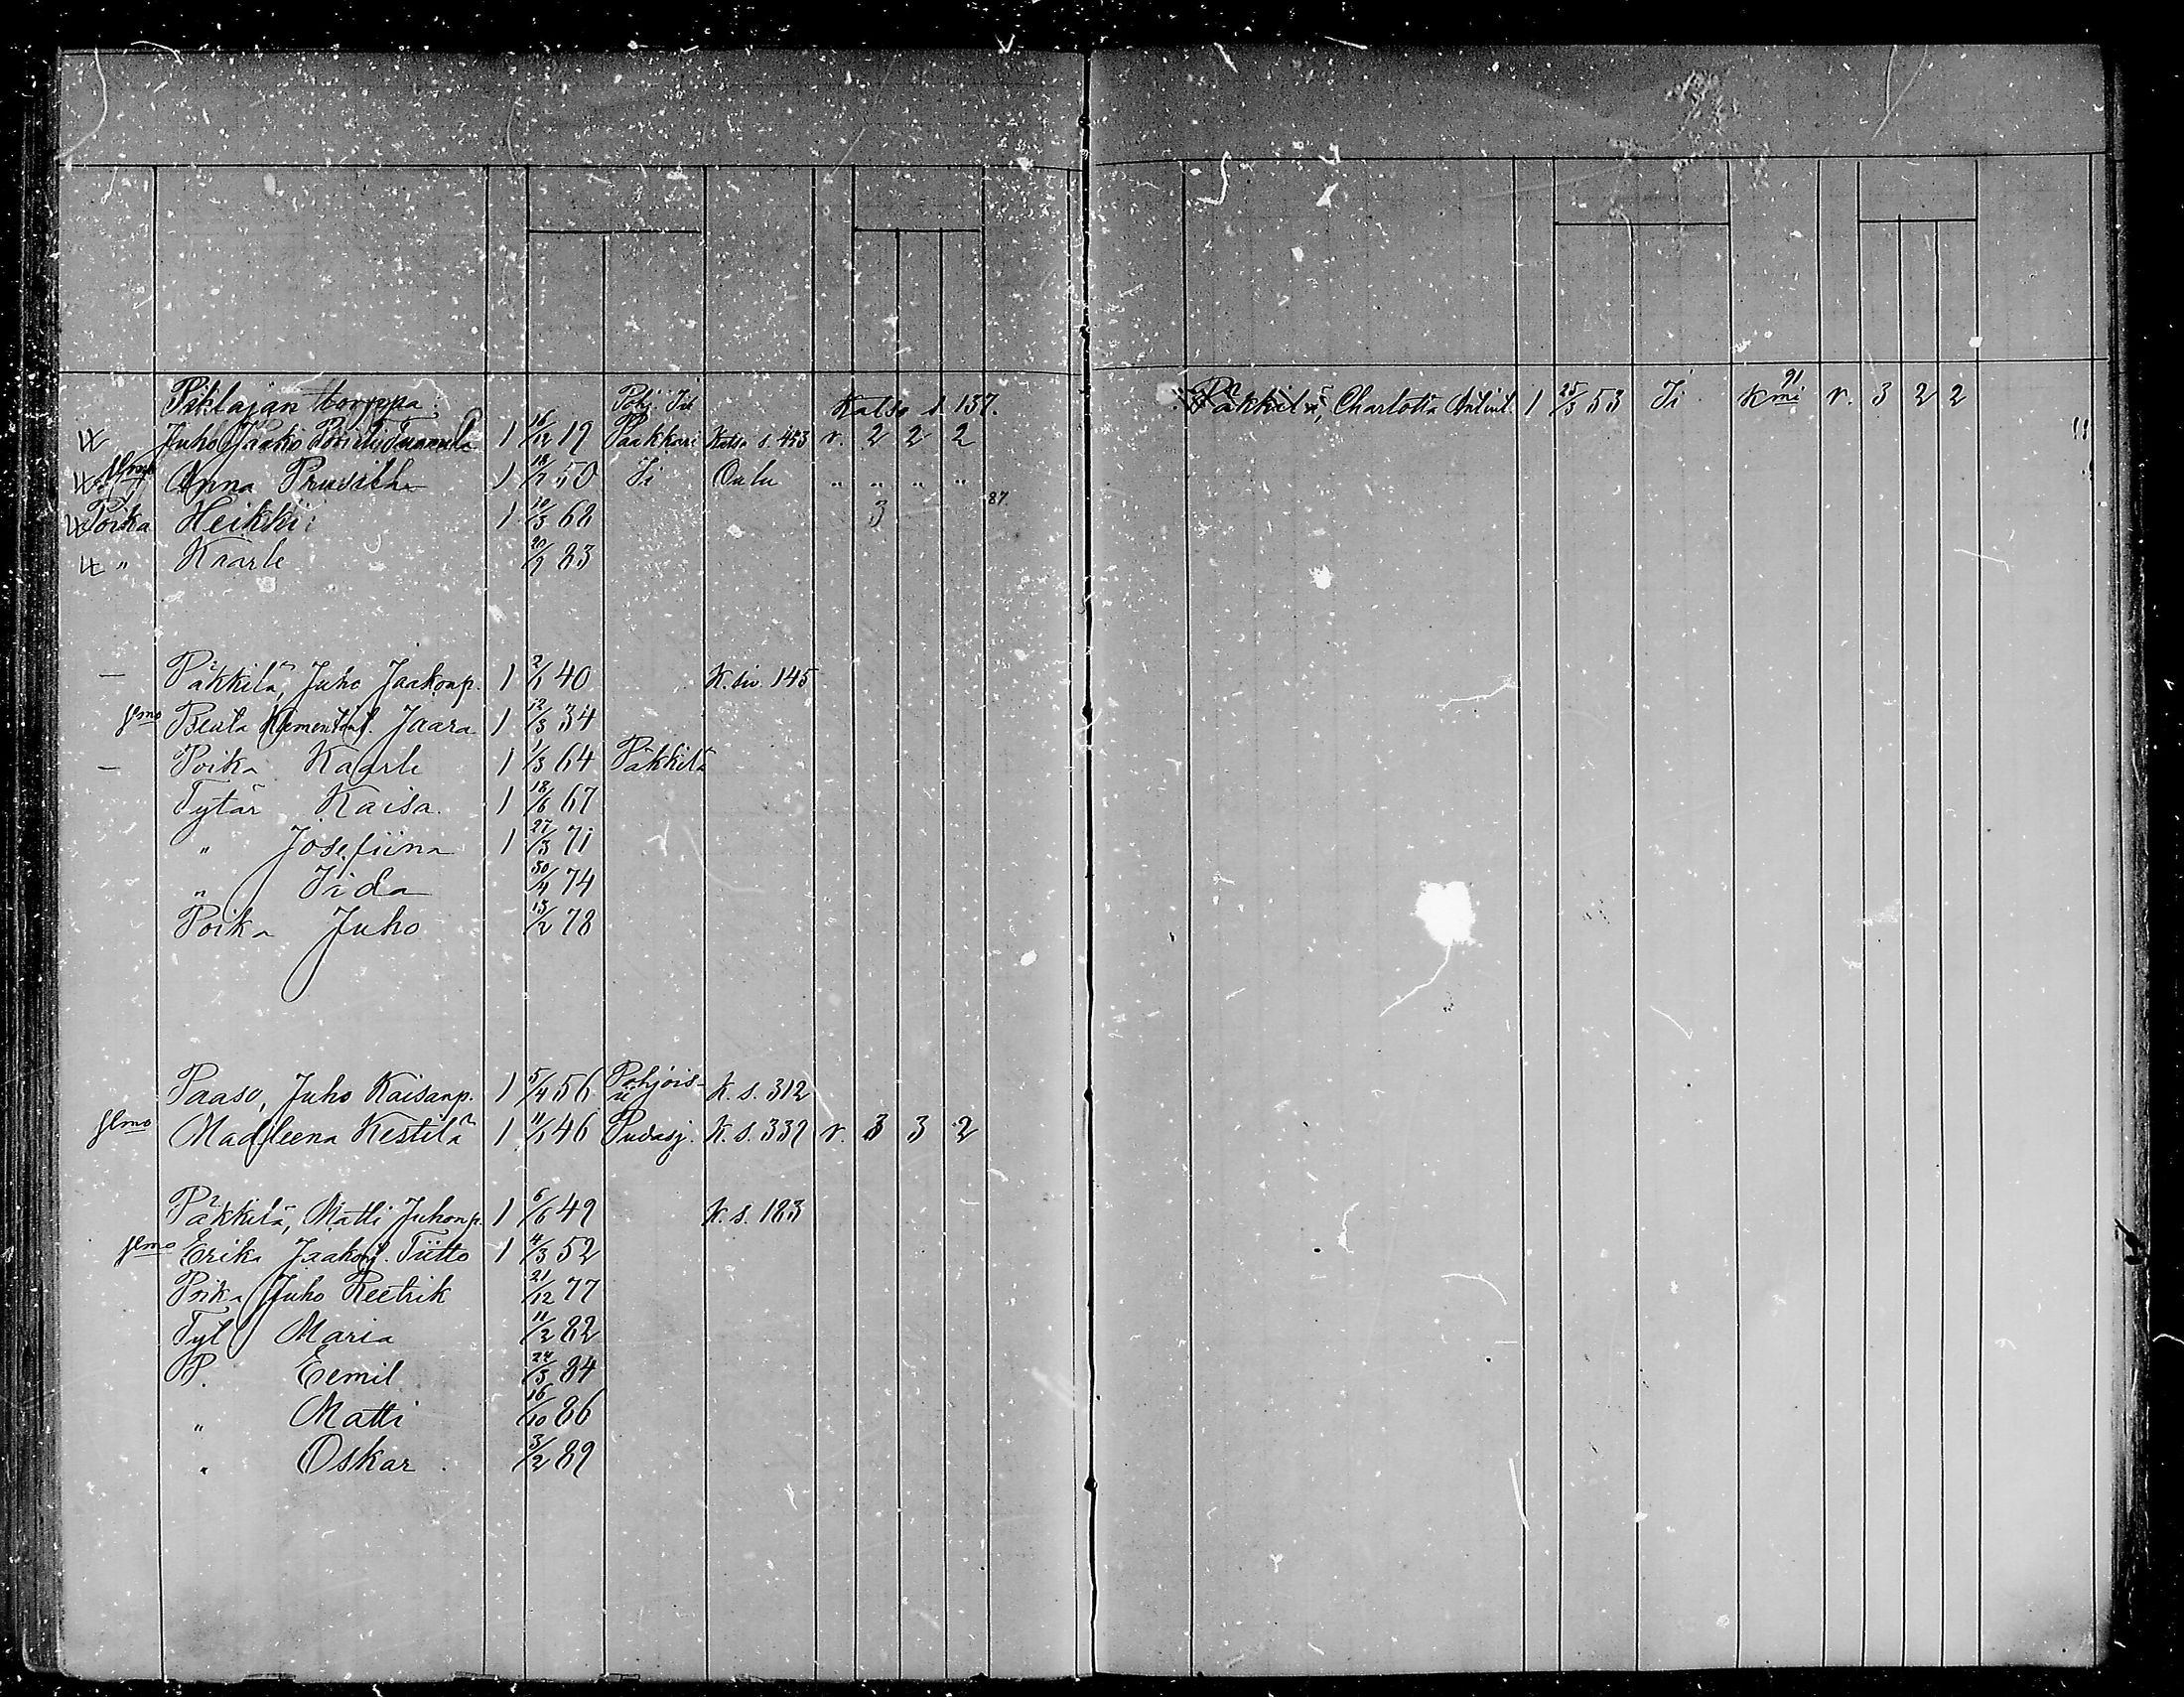 Pihlajan torppa. Pohj. Ii Katso s. 137.
Juho Jaako 1 16/12 19 Paakkari Katso s. 453 v. 2 2 2
Anna 1 18/7 50 Ii Oulu " " " "
Poika Heikki 1 10/3 68 3 87.
" Kaarle 20/9 83
— Päkkilä, Juho Jaakonp. 1 2/1 40 K. siv. 145
Beata Klementint. Jaara 1 12/3 34
— Poika Kaarle 1 1/3 64 Päkkilä
Tytär Kaisa. 1 18/6 67
" Josefiina 1 27/3 71
" Iida 30/4 74
Poika Juho 13/2 78
Paaso, Juho Kaisanp. 1 5/4 56 Pohjois-ii K. s. 312
Madleena Kestilä 1 11/1 46 Pudasj. K. s. 339 v. 3 3 2
Päkkilä, Matti Juhonp. 1 6/6 49 K. s. 183
Erika Jaakont. Tiitto 1 4/3 52
Poika Juho Reetrik 21/12 77
Tyt Maria 11/2 82
P. Eemil 24/3 84
" Matti 16/10 86
" Oskar 3/2 89
Päkkilä, Charlotta Antint. 1 25/3 53 Ii 91 v. 3 2 2